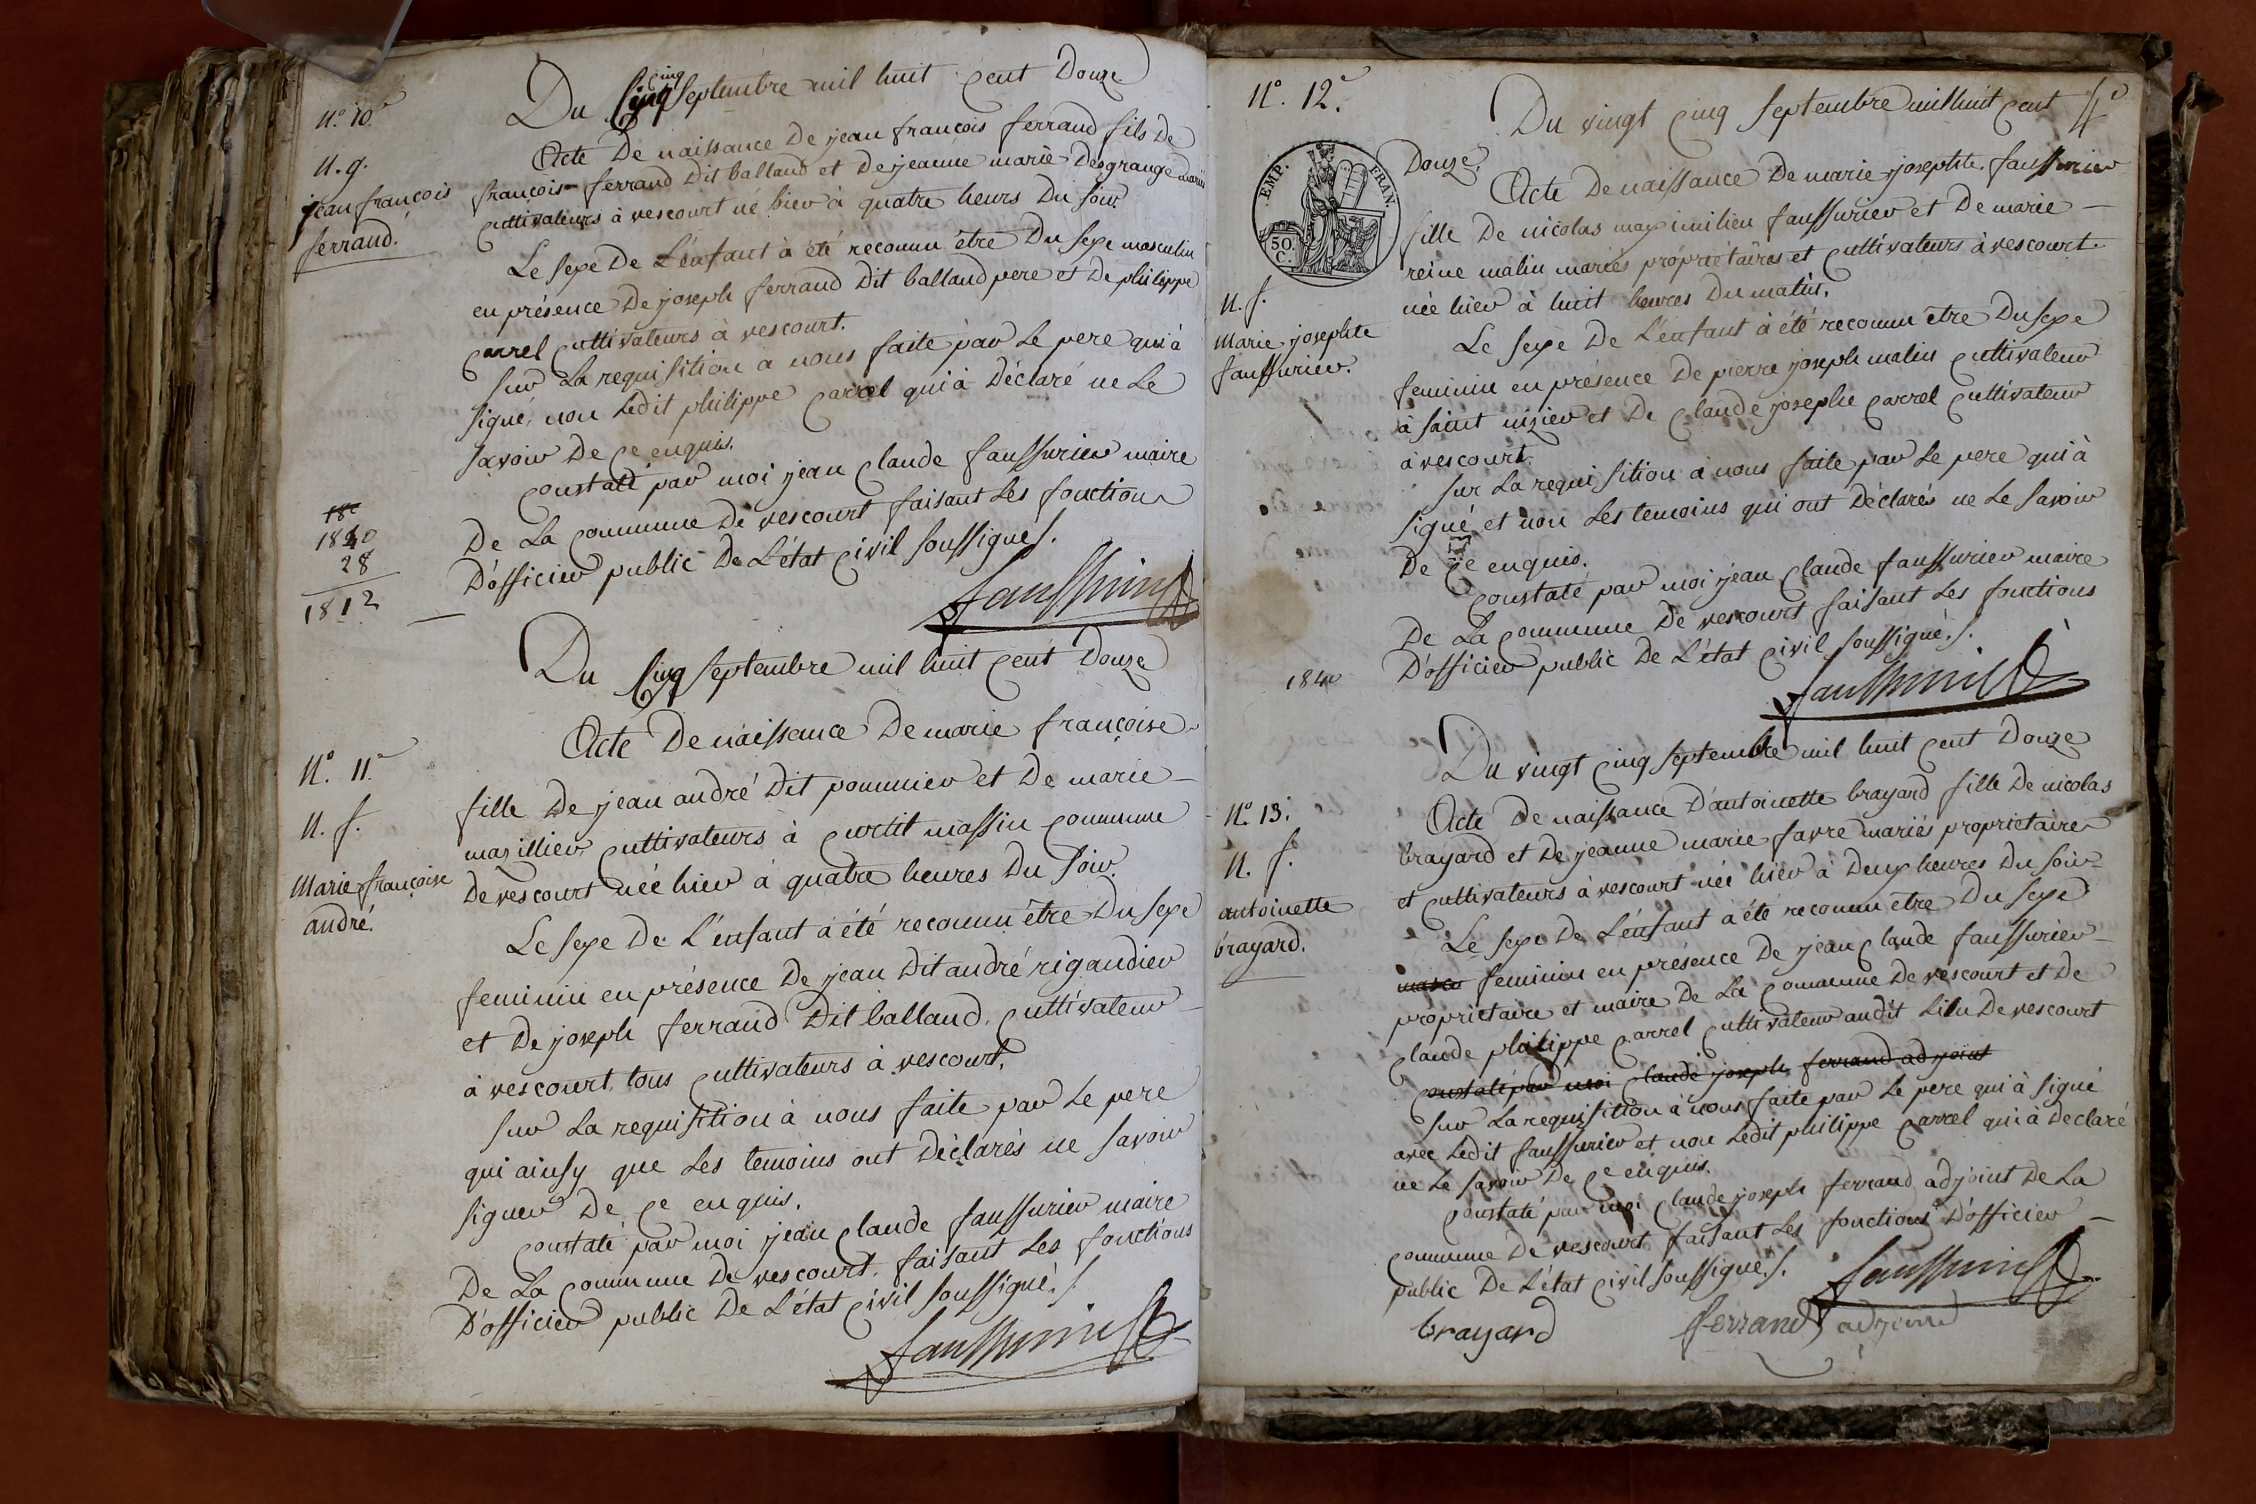 N.° 10.e
N. g.
jean françois
ferrand.
Du cinq septembre mil huit cent Douze
Acte De naissance De jean françois ferrand fils De
françois ferrand Dit balland et De jeanne marie Desgrange mariés
cultivateurs à vescourt né hier à quatre heurs Du soir.
Le sexe De L'énfant à été reconnu être Du sexe masculin
en présence De joseph ferrand Dit balland pere et De philippe
carrel cultivateurs à vescourt.
sur La requisition à nous faite par Le pere qui à
signé, non Ledit philippe carrel qui à Déclaré ne Le
savoir De ce enquis.
constaté par moi jean claude faussurier maire
De La commune De vescourt faisant Les fonctions
D'officier public De L'état civil soussigné ./.
faussurier
18c
1840
28
1812
Du cinq septembre mil huit cent Douze
N.° 11.e
N. f.
Marie françoise
andré.
Acte De naissance De marie françoise
fille De jean andré Dit pommier et De marie
mazillier cultivateurs à curtit massin commune
De vescourt née hier à quatre heures Du soir.
Le sexe De L'énfant à été reconnu être Du sexe
feminin en présence De jean Dit andré rigaudier
et De joseph ferrand Dit balland, cultivateur
à vescourt, tous cultivateurs à vescourt.
sur La requisition à nous faite par Le pere
qui ainsy que Les temoins ont Déclarés ne savoir
signer De ce enquis.
constaté par moi jean claude faussurier maire
De La commune De vescourt, faisant Les fonctions
D'officier public De L'état civil soussigné ./.
faussurier
N.° 12.e
4e
Du vingt cinq septembre mil huit cent
Douze.
EMP. FRAN.
50.
C.
N. f.
Marie josephte
faussurier.
Acte De naissance De marie josephte faussurier
fille De nicolas maximilien faussurier et De marie
reine malin mariés propriétaires et cultivateurs à vescourt
née hier à huit heures Du matin.
Le sexe De L'énfant à été reconnu être Du sexe
feminin en présence De pierre joseph malin cultivateur
à saint nizier et De claude josephe carrel cultivateur
à vescourt.
sur La requisition à nous faite par Le pere qui à
signé et non Les temoins qui ont Déclarés ne Le savoir
De ce enquis.
constaté par moi jean claude faussurier maire
De La commune De vescourt faisant Les fonctions
D'officier public De L'état civil soussigné ./.
faussurier
Du vingt cinq septembre mil huit cent Douze
N.° 13.
N. f.
antoinette
brayard.
Acte De naissance D'antoinette brayard fille De nicolas
brayard et De jeanne marie favre mariés proprietaires
et cultivateurs à vescourt née hier à Deux heures Du soir
Le sexe De L'énfant à été reconnu être Du sexe
mascu feminin en présence De jean claude faussurier
proprietaire et maire De La commune De vescourt et De
claude philippe carrel cultivateur audit lieu De vescourt
constaté par moi claude joseph ferrand adjoint
sur La requisition à nous faite par Le pere qui à signé
avec Ledit faussurier et non Ledit philippe carrel qui à Déclaré
ne Le savoir De ce enquis.
constaté par moi claude joseph ferrand adjoint De La
commune De vescourt faisant Les fonctions D'officier
public De L'état civil soussigné ./.
faussurier
brayard
ferrand adjoind